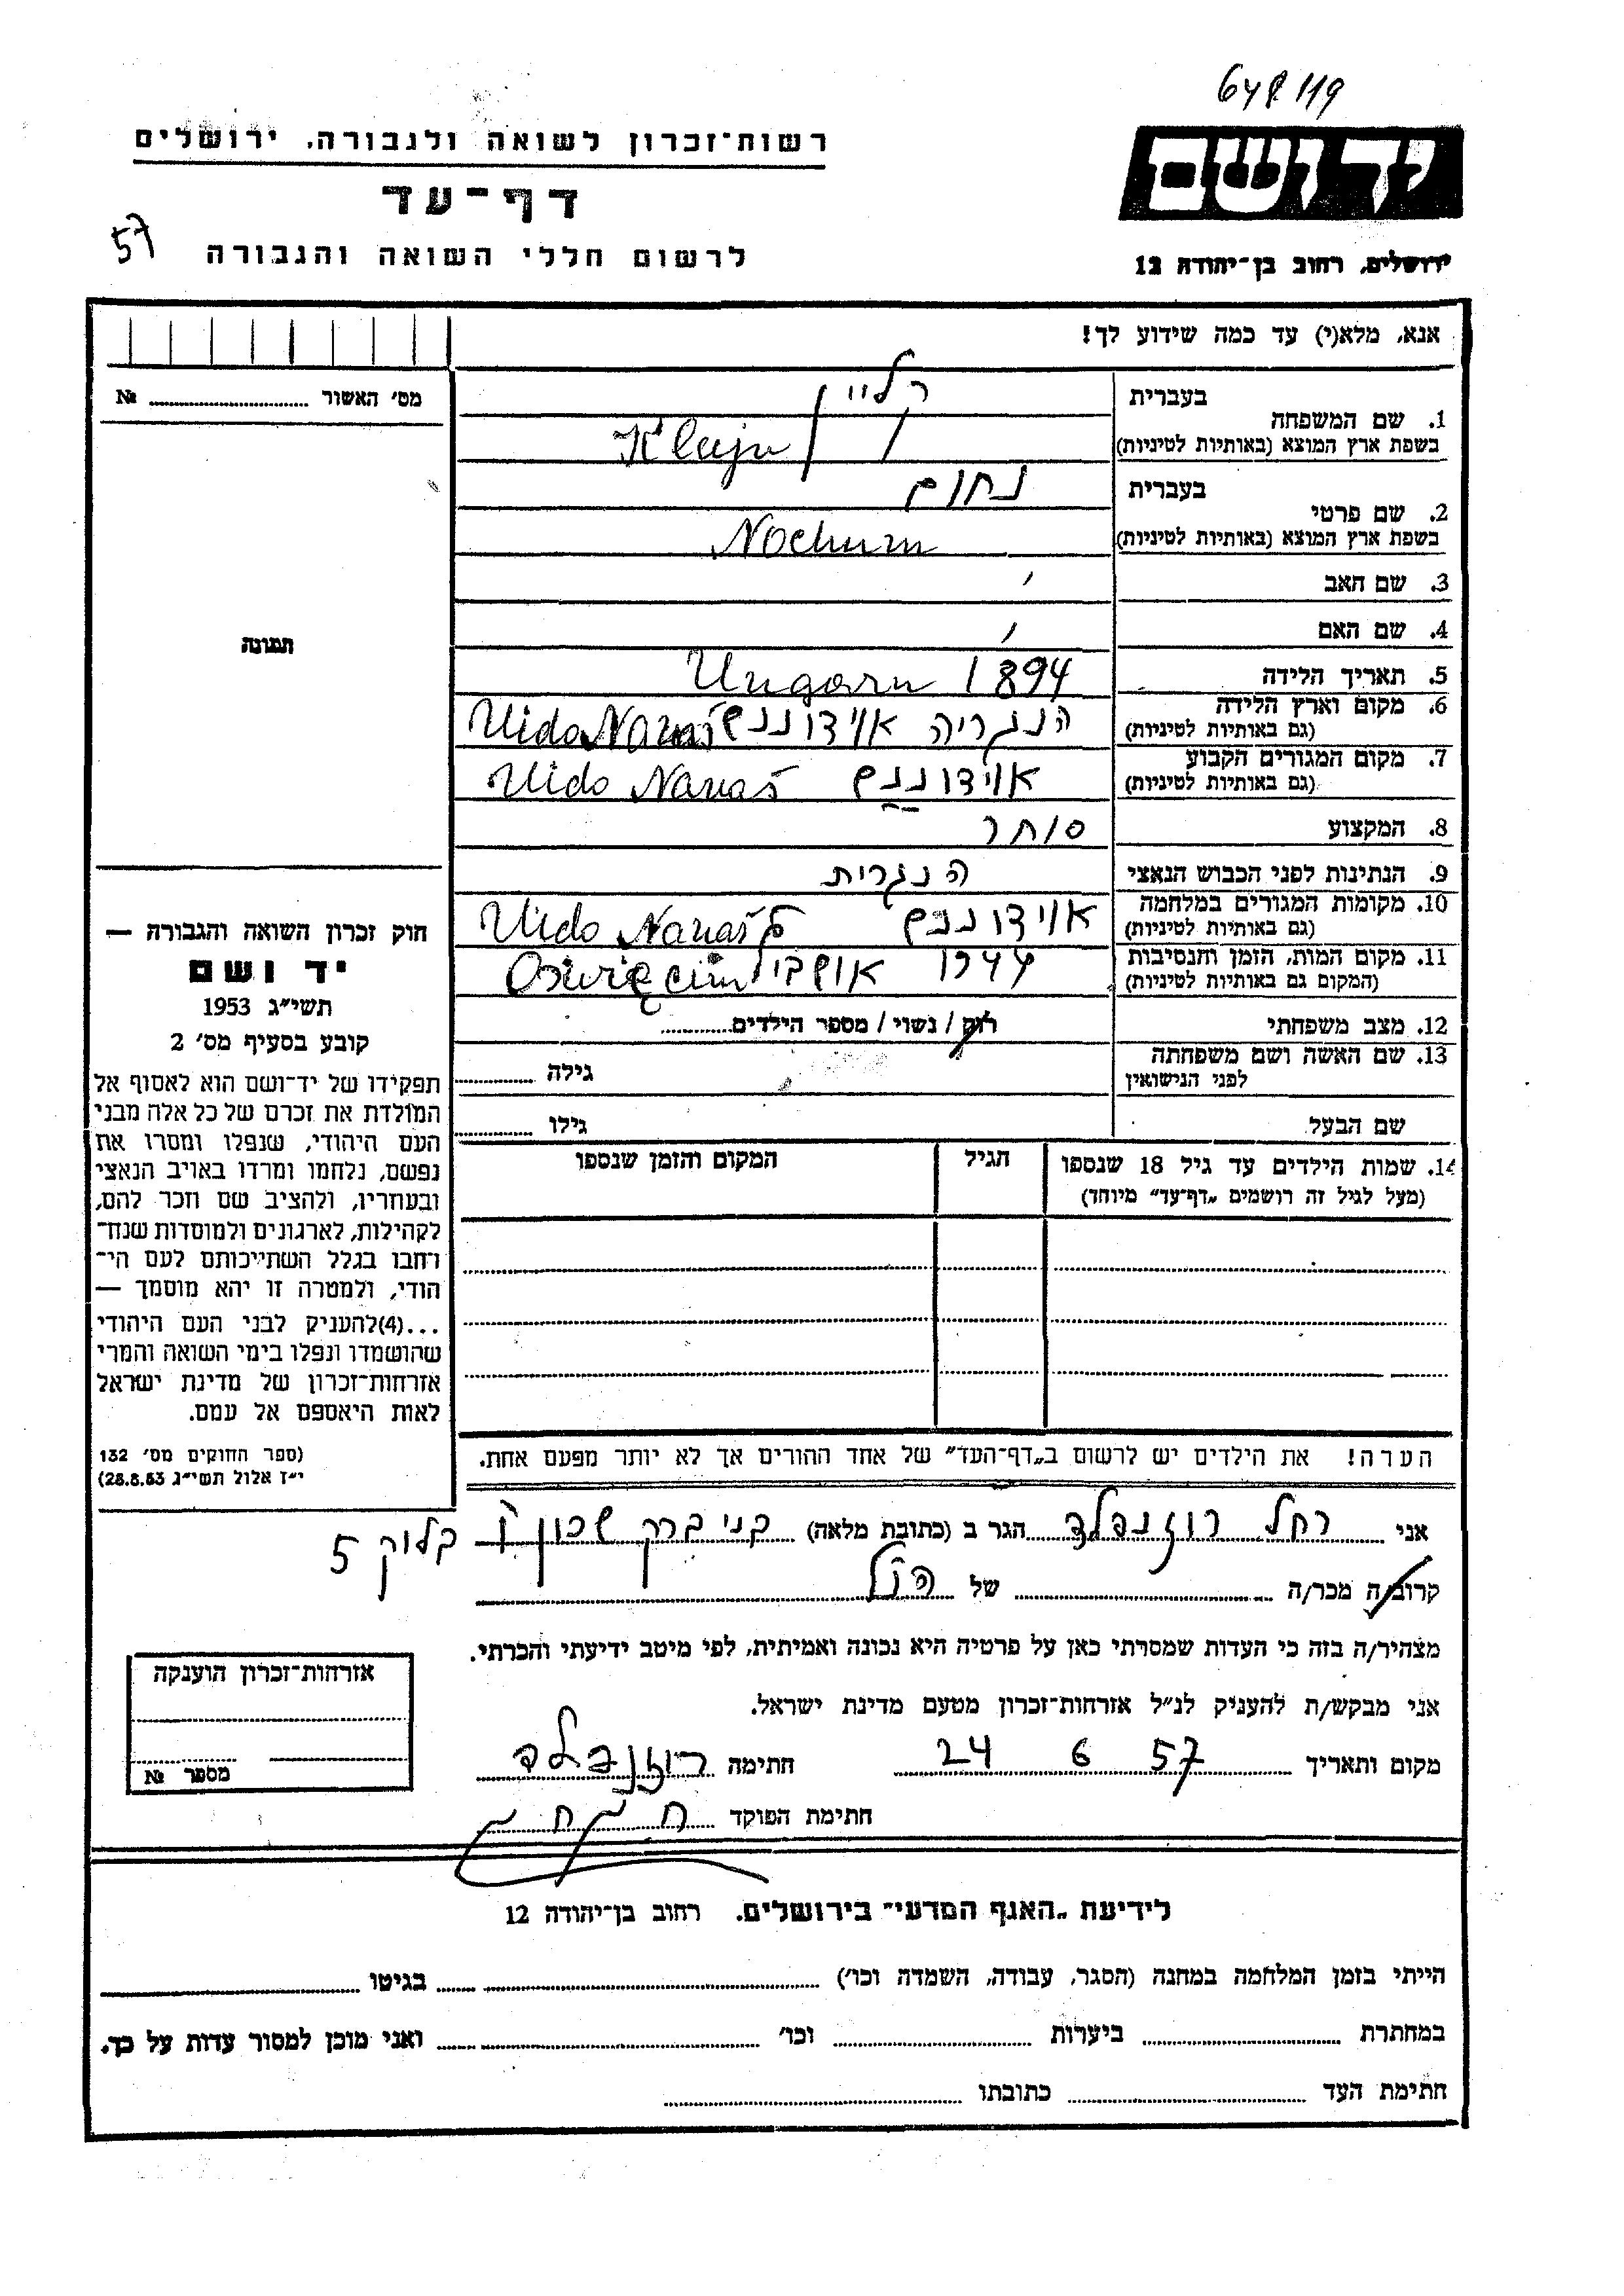 648 119
רשות־זכרון לשואה ולגבורה, ירושלים
יד ושם
דף־עד
57
לרשום חללי השואה והגבורה
ירושלים, רחוב בן־יהודה 12
אנא, מלא(י) עד כמה שידוע לך!
מס׳ האשור №
1. שם המשפחה
בעברית
קליין
בשפת ארץ המוצא (באותיות לטיניות)
Klajn
2. שם פרטי
בעברית
נחום
בשפת ארץ המוצא (באותיות לטיניות)
Nochum
3. שם האב
4. שם האם
תמונה
5. תאריך הלידה
Ungarn 1894
6. מקום וארץ הלידה
(גם באותיות לטיניות)
הנגריה אוידוננש
7. מקום המגורים הקבוע
(גם באותיות לטיניות)
אוידוננש
8. המקצוע
סוחר
9. הנתינות לפני הכבוש הנאצי
הנגרית
10. מקומות המגורים במלחמה
(גם באותיות לטיניות)
אוידוננש
11. מקום המות, הזמן והנסיבות
(המקום גם באותיות לטיניות)
12. מצב משפחתי
רוק / נשוי / מספר הילדים
13. שם האשה ושם משפחתה
לפני הנישואין
גילה
שם הבעל
גילו
14. שמות הילדים עד גיל 18 שנספו
(מעל לגיל זה רושמים „דף־עד״ מיוחד)
הגיל
המקום והזמן שנספו
חוק זכרון השואה והגבורה —
יד ושם
תשי״ג 1953
קובע בסעיף מס׳ 2
תפקידו של יד־ושם הוא לאסוף אל
המולדת את זכרם של כל אלה מבני
העם היהודי, שנפלו ומסרו את
נפשם, נלחמו ומרדו באויב הנאצי
ובעוזריו, ולהציב שם וזכר להם,
לקהילות, לארגונים ולמוסדות שנח־
רבו בגלל השתייכותם לעם הי־
הודי, ולמטרה זו יהא מוסמך —
...(4)להעניק לבני העם היהודי
שהושמדו ונפלו בימי השואה והמרי
אזרחות־זכרון של מדינת ישראל
לאות היאספם אל עמם.
(ספר החוקים מס׳ 132
י״ז אלול תשי״ג 28.8.53)
הערה! את הילדים יש לרשום ב„דף־העד״ של אחד ההורים אך לא יותר מפעם אחת.
אני רחל רוזנפלד הגר ב (כתובת מלאה) בני ברק שכון בלוק 5
קרוב/ה מכר/ה של הנ״ל
מצהיר/ה בזה כי העדות שמסרתי כאן על פרטיה היא נכונה ואמיתית, לפי מיטב ידיעתי והכרתי.
אני מבקש/ת להעניק לנ״ל אזרחות־זכרון מטעם מדינת ישראל.
מקום ותאריך 24 6 57 חתימה רוזנפלד
חתימת הפוקד
אזרחות־זכרון הוענקה
מספר №
לידיעת „האגף המדעי״ בירושלים, רחוב בן־יהודה 12
הייתי בזמן המלחמה במחנה (הסגר, עבודה, השמדה וכו׳) בגיטו
במחתרת ביערות וכו׳ ואני מוכן למסור עדות על כך.
חתימת העד כתובתו